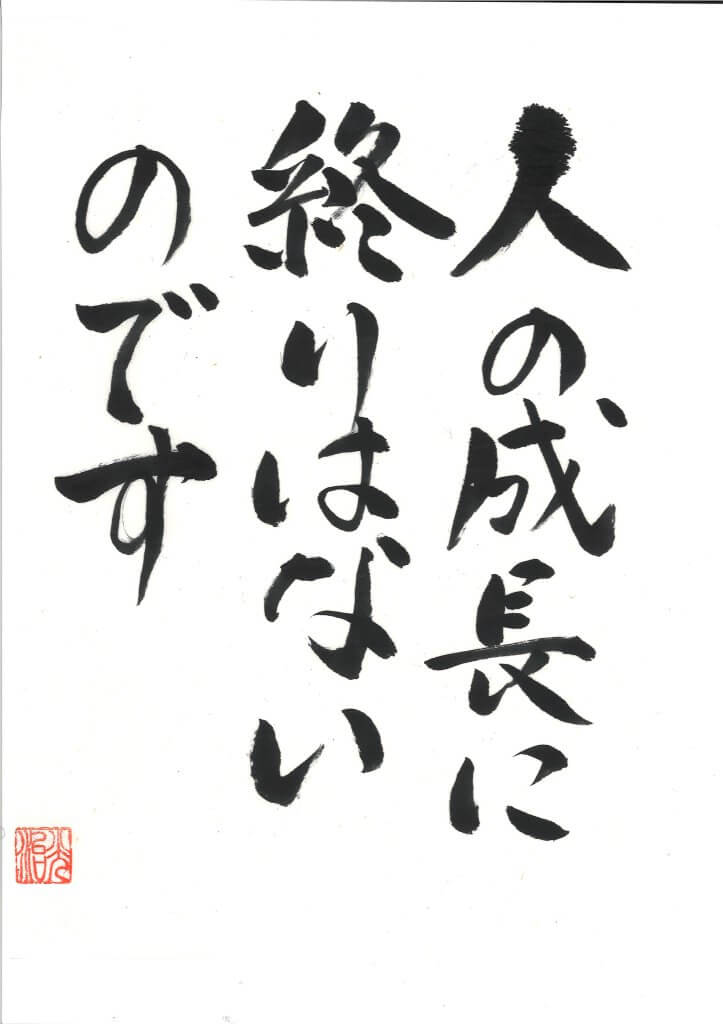 人の成長に
終りはない
のです